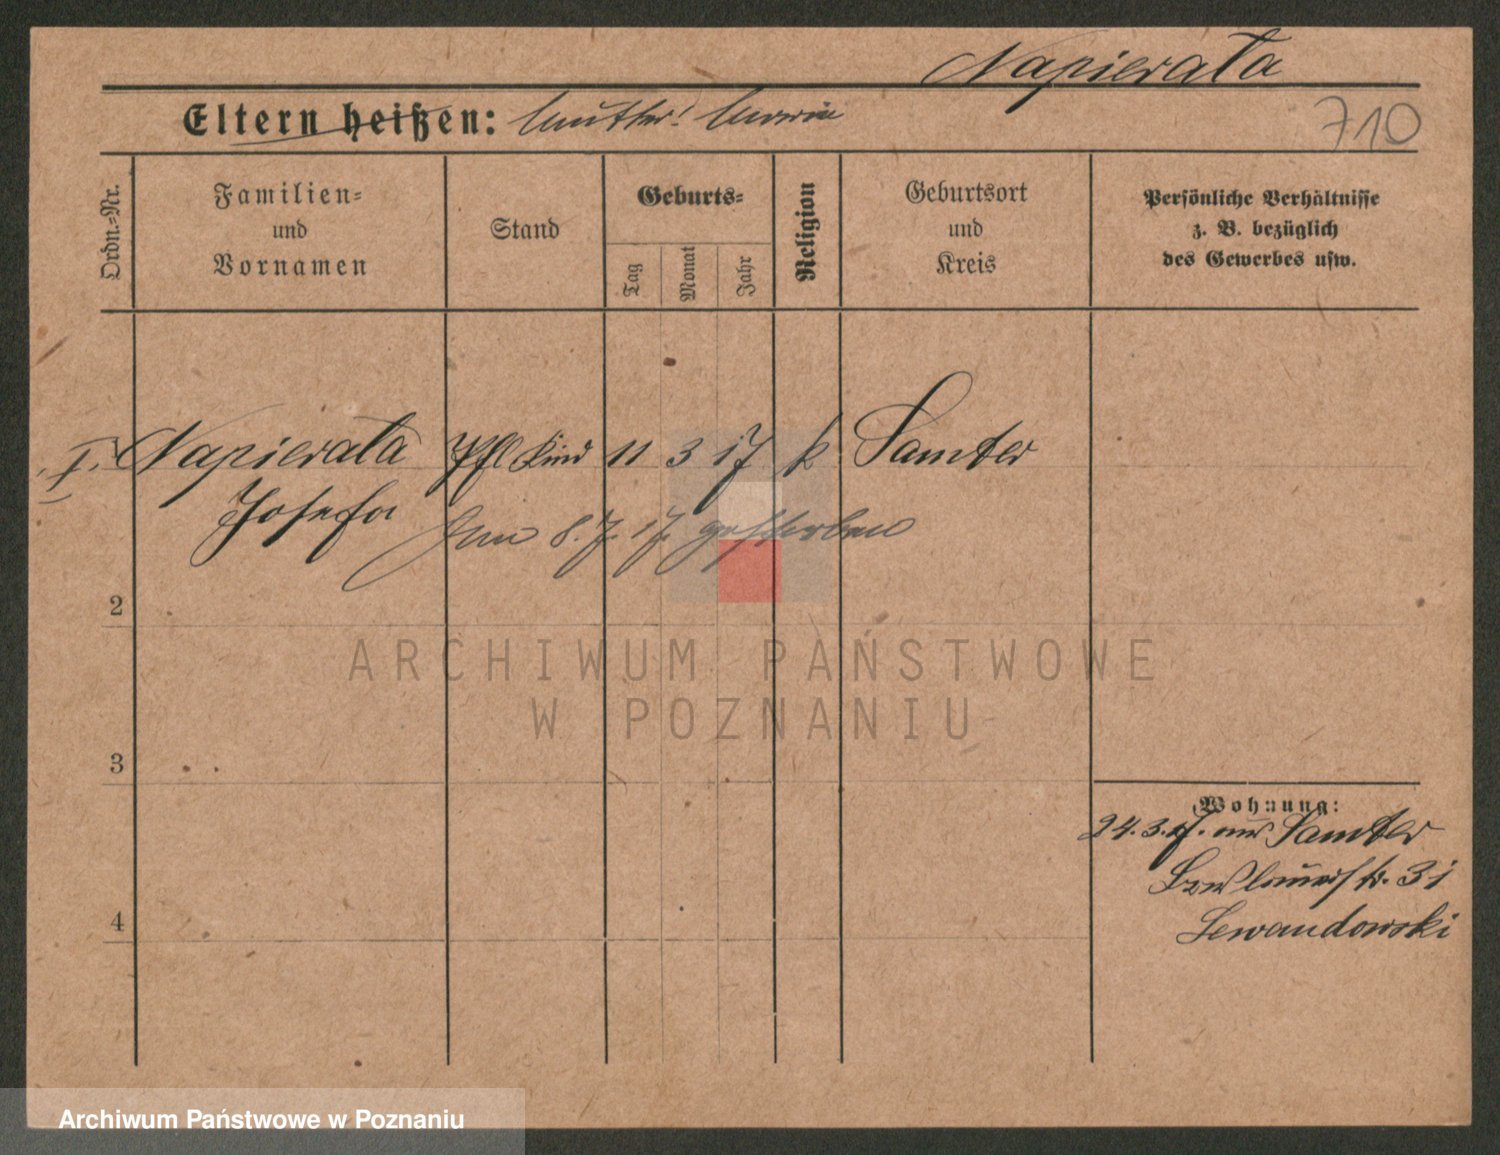 Napierata
710
Eltern heißen: Mutter: Maria
Ordn.-Nr.
Familien-
und
Vornamen
Stand
Geburts-
Tag
Monat
Jahr
Religion
Geburtsort
und
Kreis
Persönliche Verhältnisse
z. B. bezüglich
des Gewerbes usw.
I. Napierata Pfl Kind 11 3 17 k Samter
Josefa
Am 8.7.17. gestorben
2
3
4
Wohnung:
24.3.17. aus Samter
31
Lewandowski
ARCHIWUM PAŃSTWOWE
W POZNANIU
Archiwum Państwowe w Poznaniu